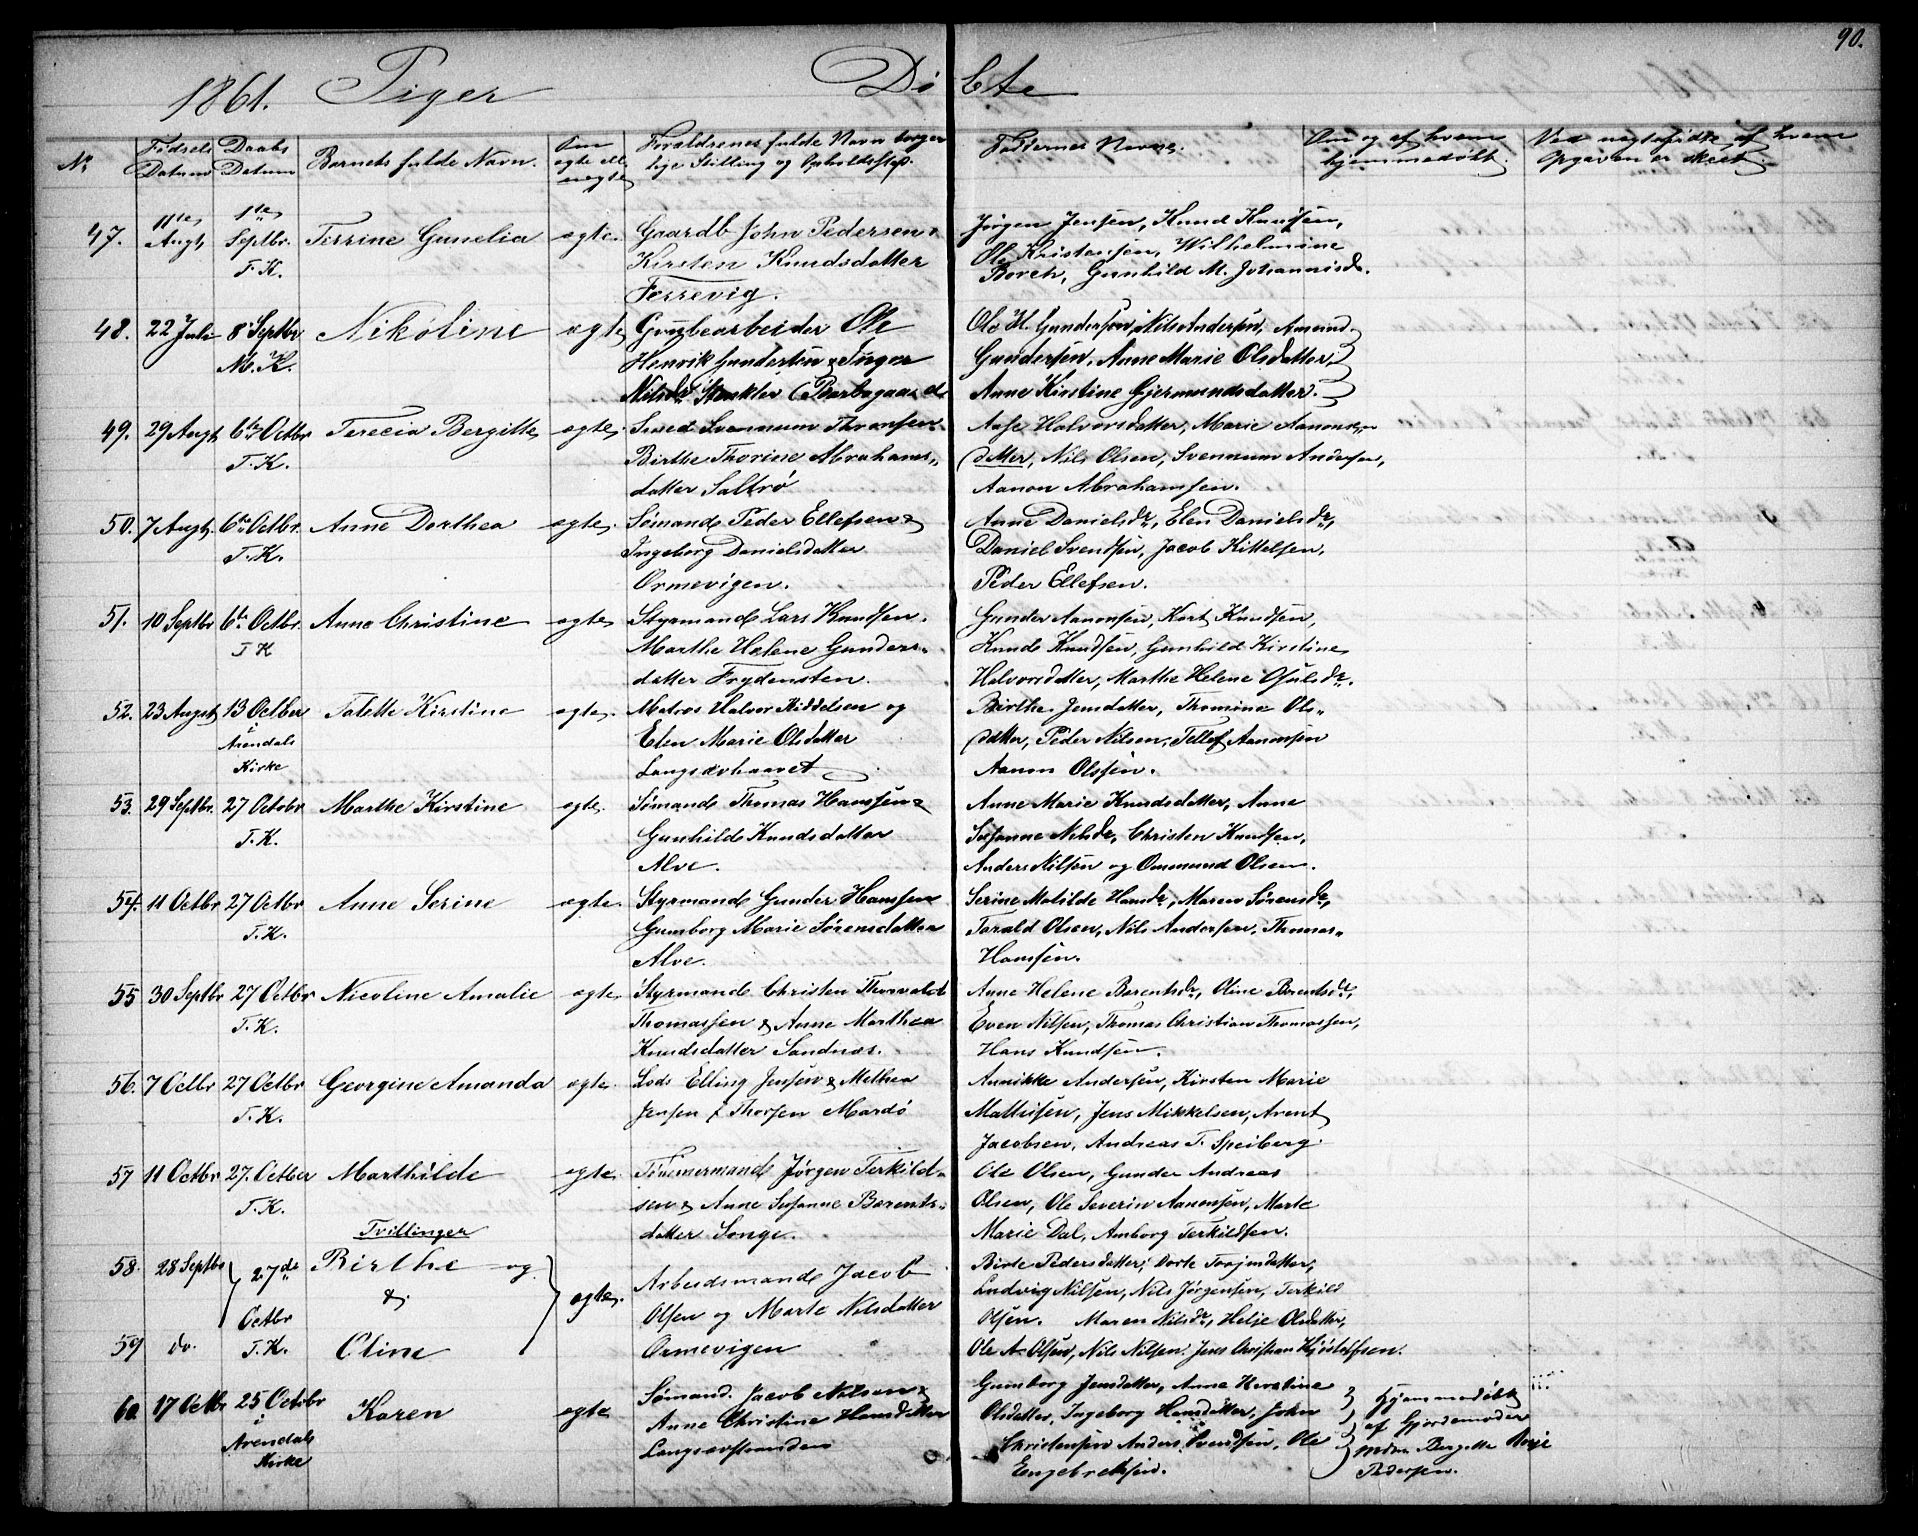 90.
1861. Piger Døbte
No
Fødsels Datum
Daabs Datum
Barnets fulde Navn.
Om ægte ell. uægte
Forældrenes fulde Navn borger
lige Stilling og Opholdssted.
Faddernes Navne.
Om og af hvem
hjemmedøbt.
Ved uægtefødte, af hvem
Opgaven er skeet.
47. 11te Augt. 1ste Septbr. T. K. Terrine Gunelia ægte. Gaardb John Pedersen &
Kirsten Knudsdatter
Færevig.
Jørgen Jensen, Knud Knudsen,
Ole Kristensen, Wilhelmine
Borch, Gunhild M. Johannisd.
48. 22 Juli 8 Septbr M. K. Nikoline ægte Grugbearbeider Ole
Henrik Gundersen & Inger
Nilsdr
Ole H. Gundersen, Nils Andersen, Amund
Gundersen, Anne Marie Olsdatter,
Anne Kirstine Gjermundsdatter.
49. 29 Augt 6te Octbr T. K. Terecia Bergitte ægte. Smed Svennum Thomsen
Birthe Thorine Abrahams„
datter Saltrö
Aase Halvorsdatter, Marie Aanonsen
datter, Nils Olsen, Svennum Andersen,
Aanon Abrahamsen.
50. 7 Augt. 6te Octbr. T. K. Anne Dorthea ægte. Sømand Peder Ellefsen &
Ingeborg Danielsdatter
Ormevigen.
Anne Danielsdr, Elen Danielsdr,
Daniel Svendsen, Jacob Kittelsen,
Peder Ellefsen.
51. 10 Septbr 6te Octbr. T K Anne Christine ægte Styrmand Lars Knudsen.
Marthe Helene Gunders„
datter Frydensten.
Gunder Aanonsen, Kort Knudsen,
Knud Knudsen, Gunhild Kirstine
Halvorsdatter, Marthe Helene Osulsdr.
52. 23 Augst 13 Octber i Arendals Kirke Talette Kirstine ægte. Matros Halvor Kiddelsen og
Elen Marie Olsdatter
Langsævhaavet
Birthe Jensdatter, Thomine Ols„
datter, Peder Nilsen, Tellef Aanonsen
Aanon Olsen.
53. 29 Septbr. 27 Octobr T. K. Marthe Kirstine ægte. Sømand Thomas Hansen &
Gunhild Knudsdatter
Alve.
Anne Marie Knudsdatter, Anne
Susanne Nilsdr, Christen Knudsen,
Anders Nilsen og Ommund Olsen.
54. 11 Octbr 27 Octbr T. K. Anne Serine ægte. Styrmand Gunder Hanssen
Gunborg Marie Sørensdatter
Alve.
Serine Matilde Hansdr, Maren Sørensdr,
Tarald Olsen, Nils Andersen, Thomas„
Hansen.
55 30 Septbr 27 Octbr T. K. Nicoline Amalie ægte Styrmand Christen Thorvald
Thomassen & Anne Marthea
Knudsdatter Sandnæs.
Anne Helene Berentsdr, Oline Berentsdr,
Even Nilsen, Thomas Christian Thomassen,
Hans Knudsen.
56. 7 Octbr 27 Octbr T. K. Georgine Amanda ægte. Lods Elling Jensen & Methea
Jensen f. Thorsen Mærdö
Annikke Andersen, Kirsten Marie
Mathisen, Jens Mikkelsen, Arent
Jacobsen, Andreas T. Speiberg.
57 11 Octbr 27. Octber T. K. Marthilde ægte. Tømmermand Jørgen Terkild„
sen & Anne Susanne Berents„
datter Songe.
Ole Olsen, Gunder Andreas
Olsen, Ole Severin Aanonsen, Marte
Marie Dal, Amborg Terkildsen.
Tvillinger
58. 28 Septbr 27de Octbr T. K. Birthe og
&
ægte. Arbeidsmand Jacob
Olsen og Marte Nilsdatter
Ormevigen
Birte Pedersdatter, Dorte Torjusdatter,
Ludvig Nilsen, Nils Jørgensen, Terkild
Olsen. Maren Nilsdr, Helje Olsdatter,
59 do. Oline
Ole A. Olsen, Nils Nilsen, Jens Christian Kjøstolfsen.
60 17 Octbr 25 Octobr i Arendals Kirke Karen ægte Sømand. Jacob Nilsen &
Anne Christine Hansdatter
Langsævstranden
Gunborg Jensdatter, Anne Kirstine
Olsdatter, Ingeborg Hansdatter, John
Christensen Anders Svendsen, Ole
Engebretsen.
Hjemmedøbt
af Gjordemoder
Mdm Bergette
Pedersen.